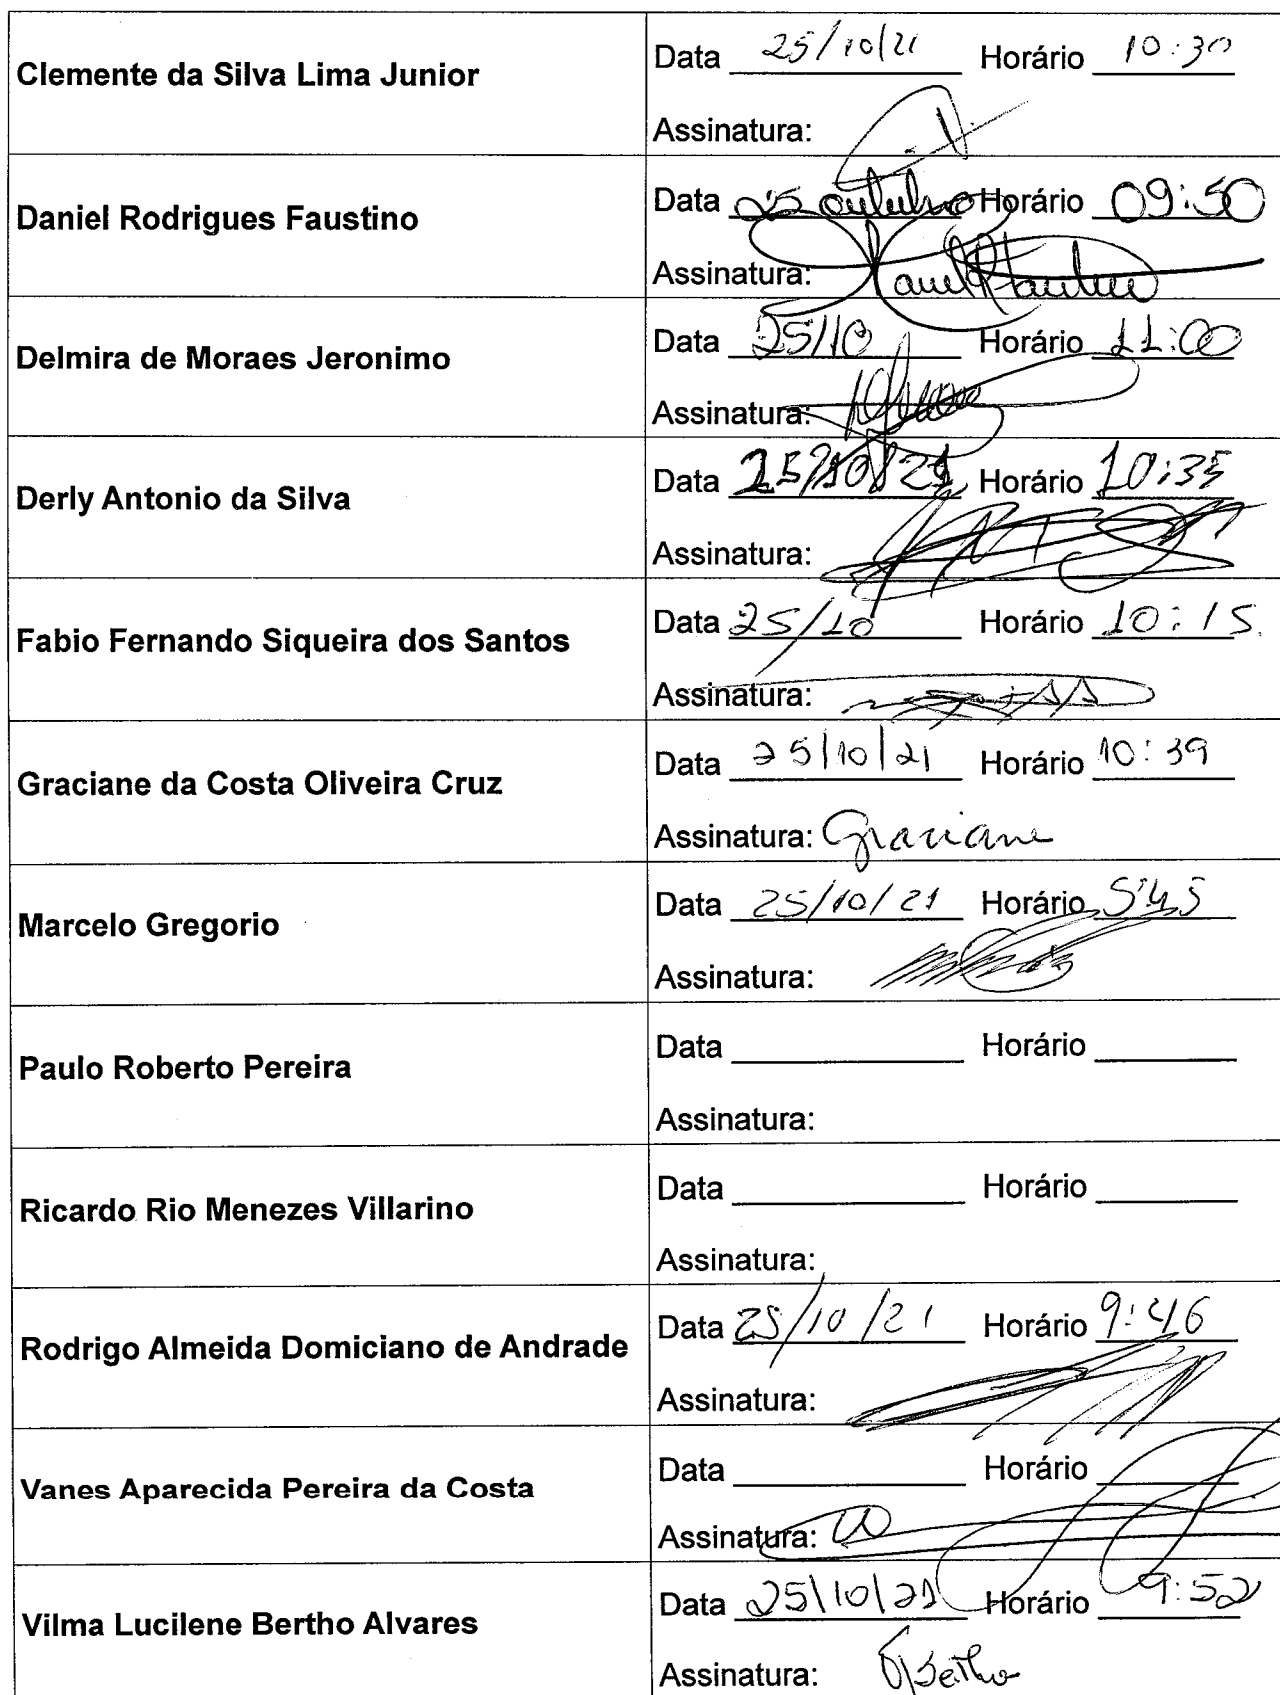 Clemente da Silva Lima Junior
Data 25/10/21 Horário 10:30
Assinatura:
Daniel Rodrigues Faustino
Data 25 outubro Horário 09:50
Assinatura:
Delmira de Moraes Jeronimo
Data 25/10 Horário 11:00
Assinatura:
Derly Antonio da Silva
Data 25/10/21 Horário 10:35
Assinatura:
Fabio Fernando Siqueira dos Santos
Data 25/10 Horário 10:15
Assinatura:
Graciane da Costa Oliveira Cruz
Data 25/10/21 Horário 10:39
Assinatura: Graciane
Marcelo Gregorio
Data 25/10/21 Horário
Assinatura:
Paulo Roberto Pereira
Data Horário
Assinatura:
Ricardo Rio Menezes Villarino
Data Horário
Assinatura:
Rodrigo Almeida Domiciano de Andrade
Data 25/10/21 Horário 9:46
Assinatura:
Vanes Aparecida Pereira da Costa
Data Horário
Assinatura:
Vilma Lucilene Bertho Alvares
Data 25/10/21 Horário 9:52
Assinatura: